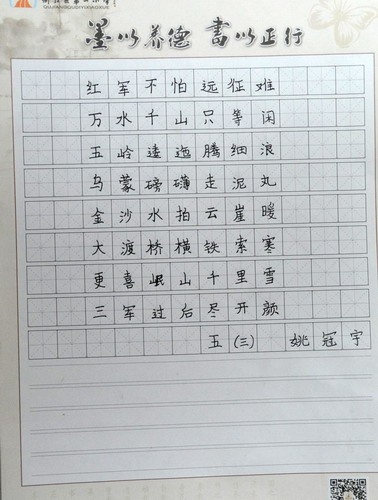 墨以养德 书以正行
红军不怕远征难
万水千山只等闲
五岭逶迤腾细浪
乌蒙磅礴走泥丸
金沙水拍云崖暖
大渡桥横铁索寒
更喜岷山千里雪
三军过后尽开颜
五(三) 姚冠宇